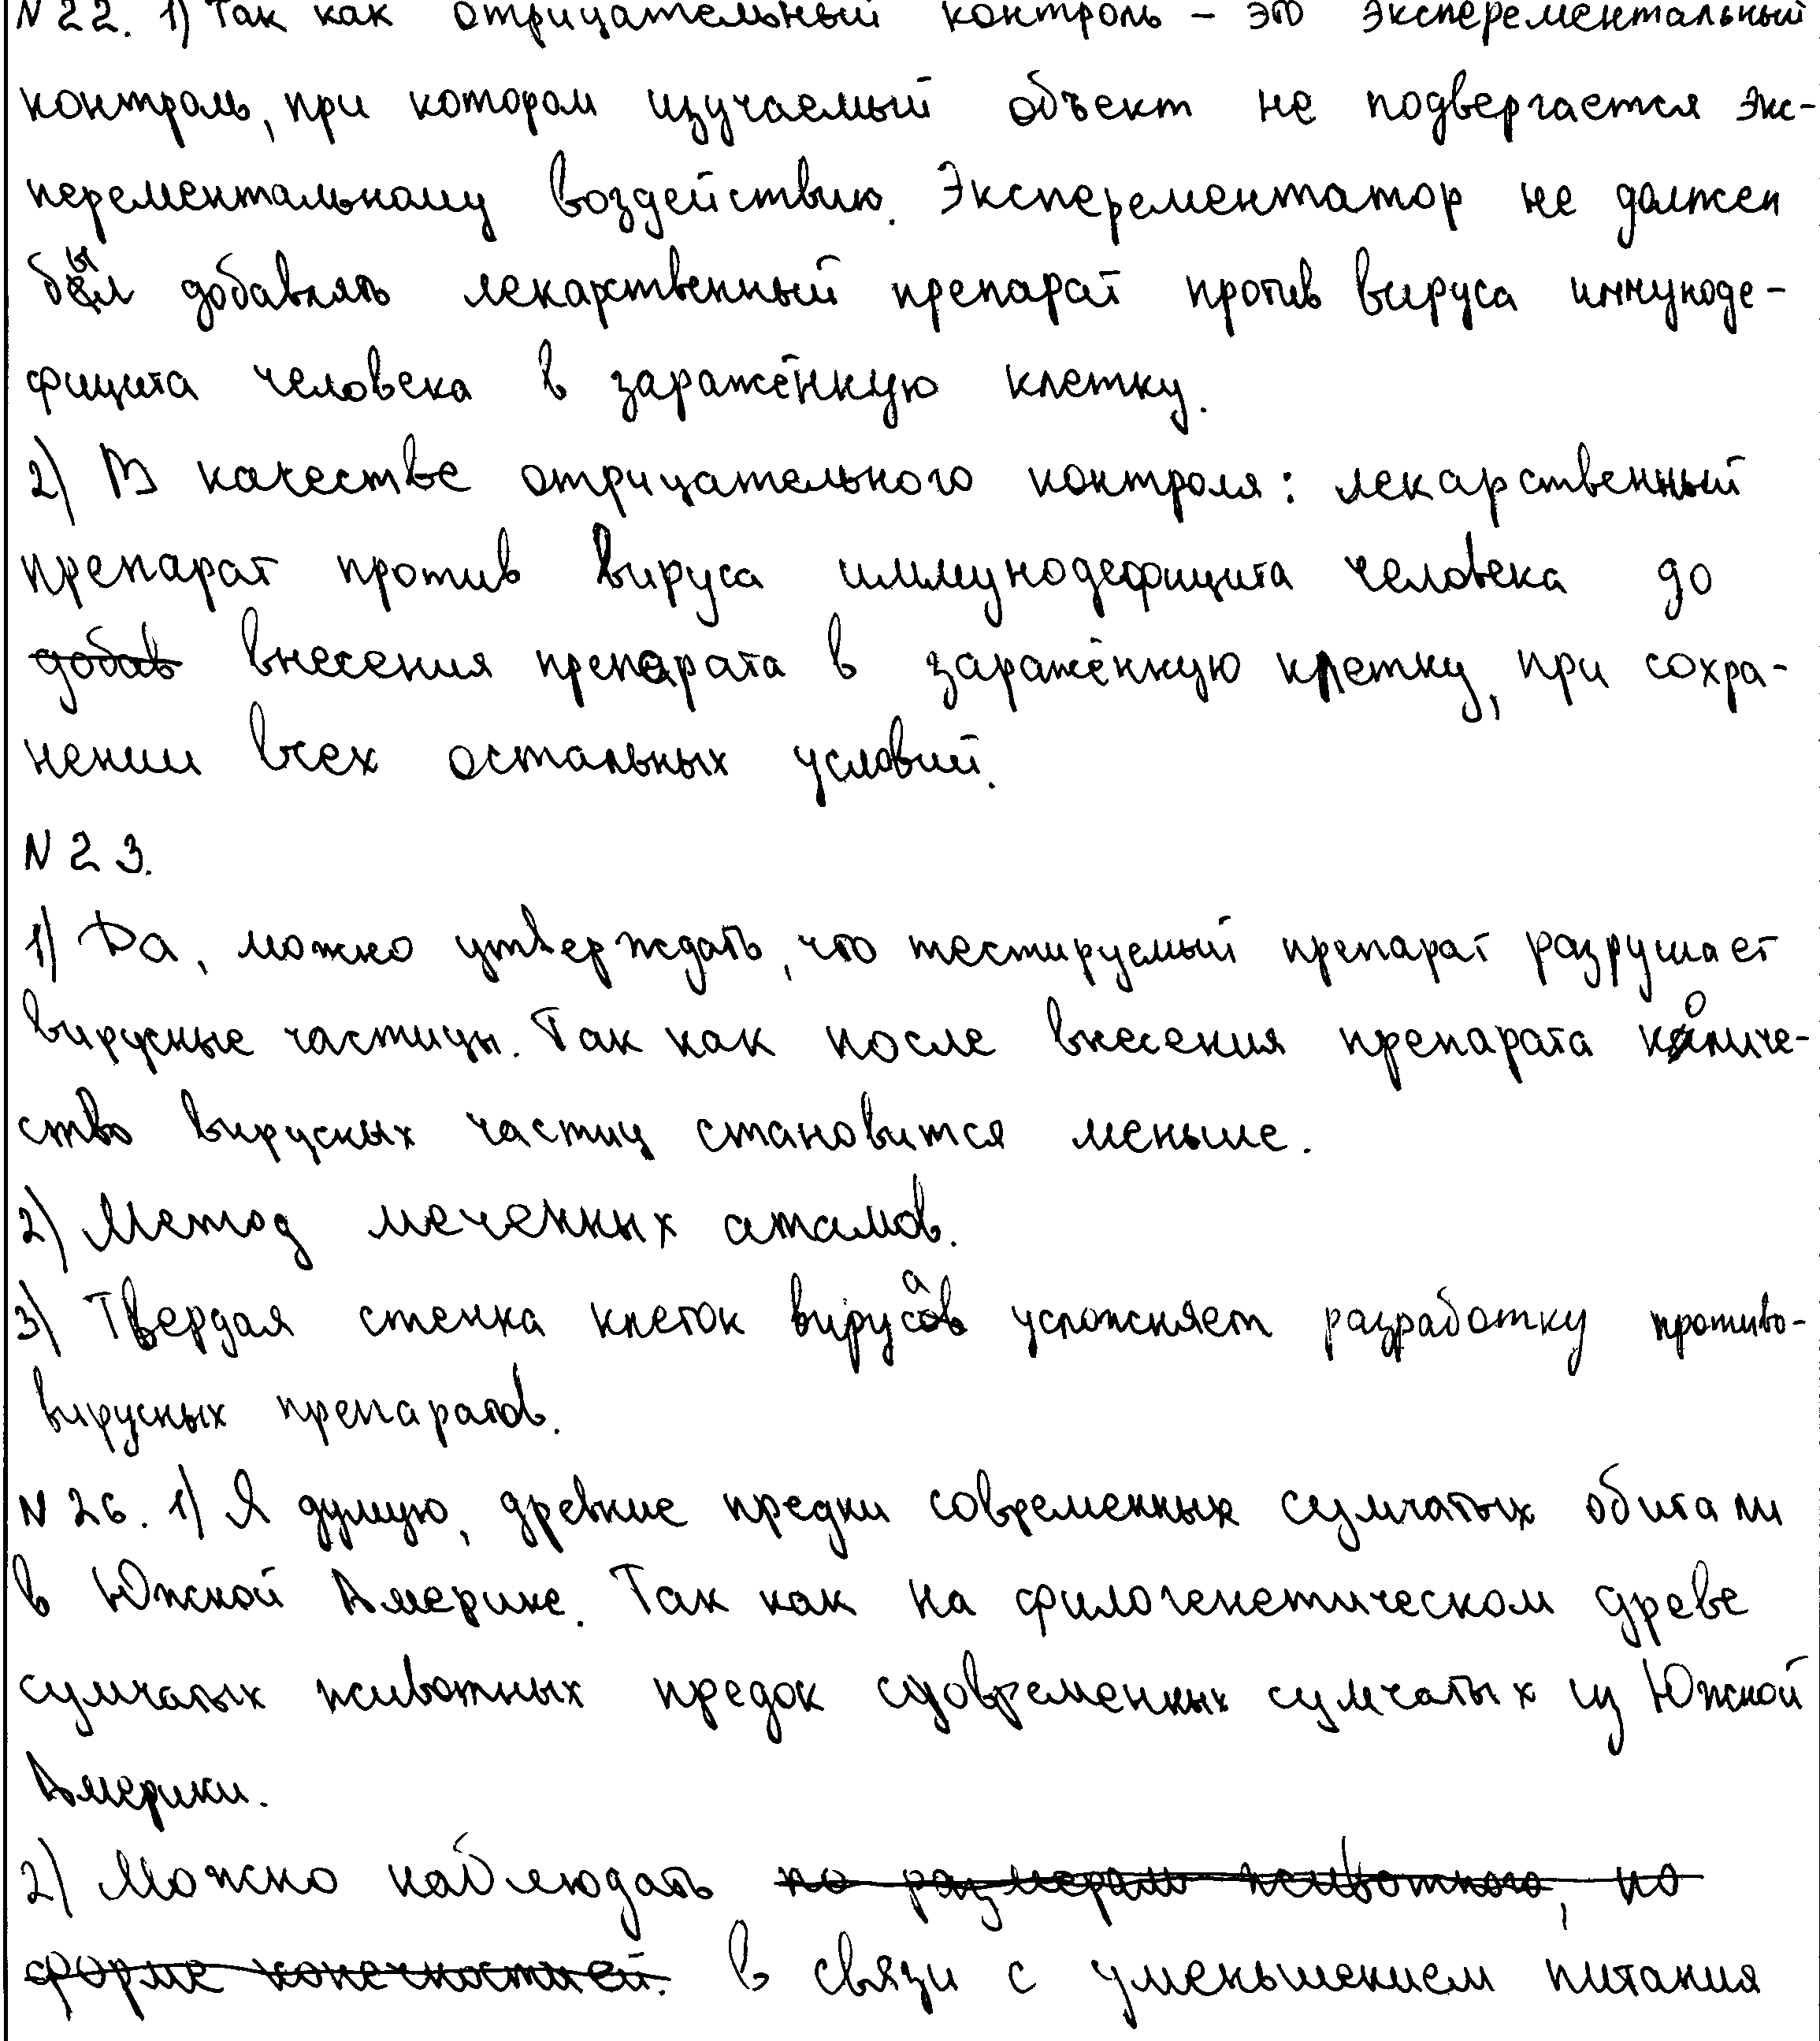 N 22. 1) Так как отрицательный контроль - это эксперементальный
контроль, при котором изучаемый объект не подвергается экс-
перементальному воздействию. Эксперементатор не должен
был добавлять лекарственный препарат против вируса иммуноде-
фицита человека в заражённую клетку.
2) В качестве отрицательного контроля: лекарственный
препарат против вируса иммунодефицита человека до
добав внесения препарата в заражённую клетку, при сохра-
нении всех остальных условий.
N 23.
1) Да, можно утверждать, что тестируемый препарат разрушает
вирусные частицы. Так как после внесения препарата количе-
ство вирусных частиц становится меньше.
2) Метод меченных атамов.
3) Твердая стенка клеток вируса усложняет разработку противо-
вирусных препаратов.
N 26. 1) Я думую, древние предки современных сумчатых обитали
в Южной Америке. Так как на филогенетическом древе
сумчатых животных предок современных сумчатых из Южной
Америки.
2) Можно наблюдать по размерам животного, по
форме конечностией. в связи с уменьшением питания